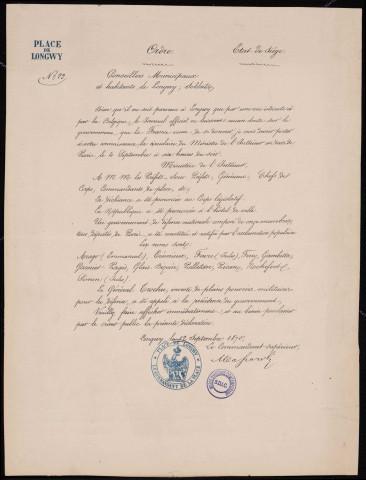 PLACE
DE
LONGWY
Ordre
Etat de siège
Conseillers Municipaux
et habitants de Longwy, Soldats,
Bien qu'il ne soit parvenu à Longwy que par une voie
par la Belgique, le Journal officiel ne laissant aucun doute sur le
gouvernement que la France vient de se donner, je dois porter
à votre connaissance la circulaire du Ministre de l'Intérieur en date de
Paris, le 4 Septembre à six heures du soir.
Ministère de l'Intérieur.
A MM. les Préfets, Sous-Préfets, Généraux, Chefs de
Corps, Commandants de place, etc.
La déchéance a été prononcée au Corps législatif.
La République a été proclamée à l'hôtel de ville.
Un gouvernement de défense nationale composé de onze membres,
tous députés de Paris, a été constitué et ratifié par l'acclamation populaire.
Les noms sont:
Arago (Emmanuel), Crémieux, Favre (Jules), Ferry, Gambetta,
Garnier-Pagès, Glais-Bizoin, Pelletan, Picard, Rochefort,
Simon (Jules).
Le Général Trochu, investi de pleins pouvoirs militaires
pour la défense, a été appelé à la présidence du gouvernement.
Veuillez faire afficher immédiatement, et au besoin proclamer
par le crieur public la présente déclaration.
Longwy, le 12 Septembre 1870.
Le Commandant supérieur,
PLACE DE LONGWY
COMMANDANT DE LA PLACE